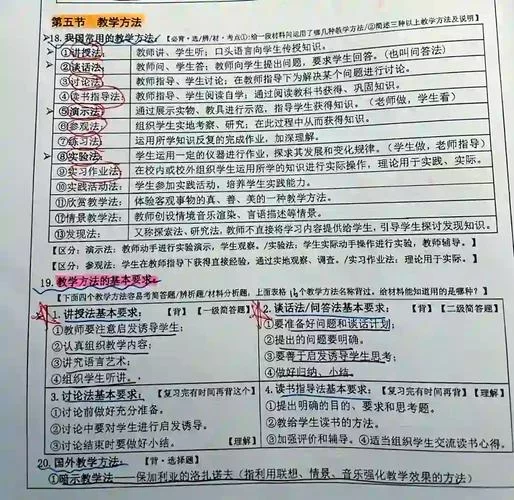 第五节 教学方法
18. 我国常用的教学方法:【必背·选/辨/材·考点①:给一段材料问运用了哪几种教学方法/②简述三种以上教学方法及说明】
①讲授法: 教师讲、学生听;口头语言向学生传授知识。
②谈话法: 教师问、学生答;教师向学生提出问题,要求学生回答。(也叫问答法)
③讨论法: 教师指导、学生讨论;在教师指导下为解决某个问题进行讨论。
④读书指导法: 教师指导、学生阅读自学;通过阅读教科书获得、巩固知识。
⑤演示法: 通过展示实物、教具进行示范,指导学生获得知识。(老师做,学生看)
⑥参观法: 组织学生实地考察、研究;在此过程中从而获得知识。
⑦练习法: 运用所学知识反复的完成作业,加深理解。
⑧实验法: 学生运用一定的仪器进行作业,探求其发展和变化规律。(学生做,老师指导)
⑨实习作业法: 在校内或校外组织学生运用所学的知识进行实际操作,理论用于实践、实际。
⑩实践活动法: 学生参加实践活动,培养学生实践能力。
⑪欣赏教学法: 体验客观事物的真、善、美的一种教学方法。
⑫情景教学法: 教师创设情境音乐渲染、言语描述等情景。
⑬发现法: 又称探索法、研究法,教师不直接将学习内容提供给学生,引导学生探讨发现知识。
【区分:演示法:教师动手进行实验演示,学生观察。/实验法:学生实际动手操作进行实验,教师辅导。】
【区分:参观法:学生在教师指导下获得直接经验,通过实地观察、调查。/实习作业法:理论用于实际。】
19. 教学方法的基本要求:
【下面四个教学方法容易考简答题/辨析题/材料分析题,上面表格13个教学方法名称背过,给材料能知道用的是哪种?】
1. 讲授法基本要求: 【背】【一级简答题】
①教师要注意启发诱导学生;
②认真组织教学内容;
③讲究语言艺术;
④组织学生听讲。
2. 谈话法/问答法基本要求: 【背】【二级简答题】
①要准备好问题和谈话计划;
②提出的问题要明确。
③要善于启发诱导学生思考;
④做好归纳、小结。
3. 讨论法基本要求: 【复习完有时间再背这个】
①讨论前做好充分准备。
②讨论中要对学生进行启发诱导。
③讨论结束时要做好小结。 【理解】
4. 读书指导法基本要求:【复习完有时间再背】【理解】
①提出明确的目的、要求和思考题。
②教给学生读书的方法。
③加强评价和辅导。④适当组织学生交流读书心得。
20. 国外教学方法: 【背·选择题】
①暗示教学法——保加利亚的洛扎诺夫(指利用联想、情景、音乐强化教学效果的方法)